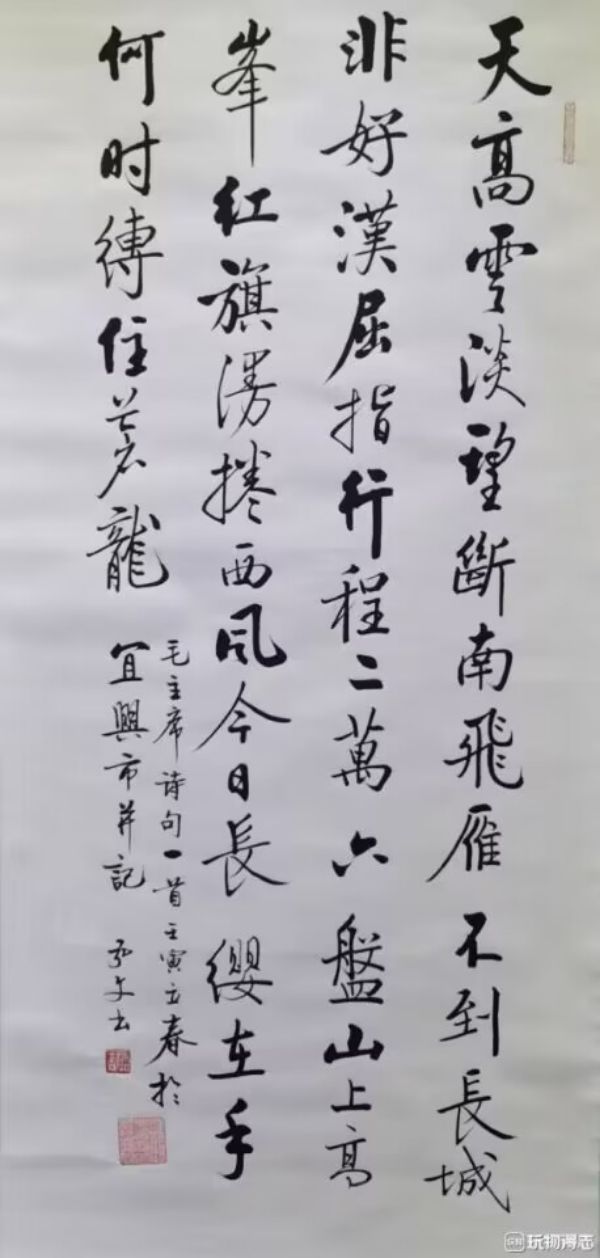 天高雲淡望斷南飛雁不到長城
非好漢屈指行程二萬六盤山上高
峯紅旗漫捲西风今日長纓在手
何时縛住苍龍
毛主席诗句一首壬寅立春於
宜興市并記
玩物得志